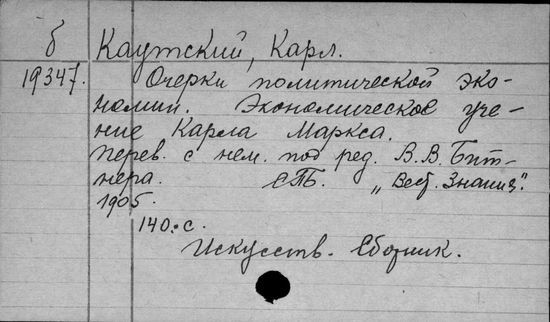 б Каутский, Карл.
19347. Очерки политической эко-
номии. Экономическое уче-
ние Карла Маркса.
Перев. с нем. под ред. В.В. Бит-
нера. СПБ. „Вест. Знания".
1905.
140. с.
Искусств. Сборник.